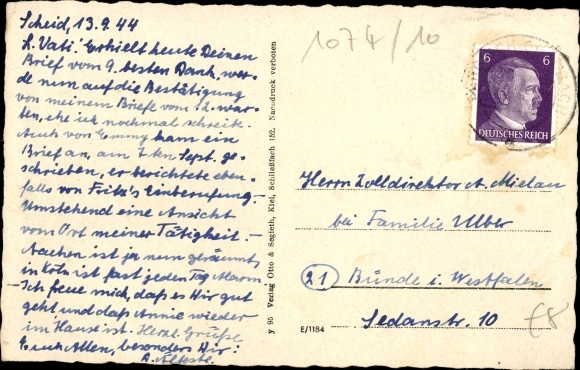 Scheid, 13.9.44
L. Vati! Erhielt heute Deinen
Brief vom 9. besten Dank, wer-
de nun auf die Bestätigung
von meinem Briefe vom 12. war-
ten, ehe ich nochmal schreibe.
Auch von Emmy kam ein
Brief an, am 7ten Sept. ge-
schrieben, er berichtete eben-
falls von Fritz's Einberufung.-
Umstehend eine Ansicht
vom Ort meiner Tätigkeit.-
Aachen ist ja nun geräumt,
in Köln ist fast jeden Tag Alarm.
- Ich freue mich, daß es Dir gut
geht und daß Annie wieder
im Hause ist. Herzl. Grüße
Euch Allen, besonders Dir!
y 95 Verlag Otto & Sagleth, Kiel, Schließfach 152. Nachdruck verboten
1074/10
6 6
DEUTSCHES REICH
Herrn Zolldirektor A. Mielau
bei Familie Ulber
21 Bünde i. Westfalen
Sedanstr. 10
E/1184